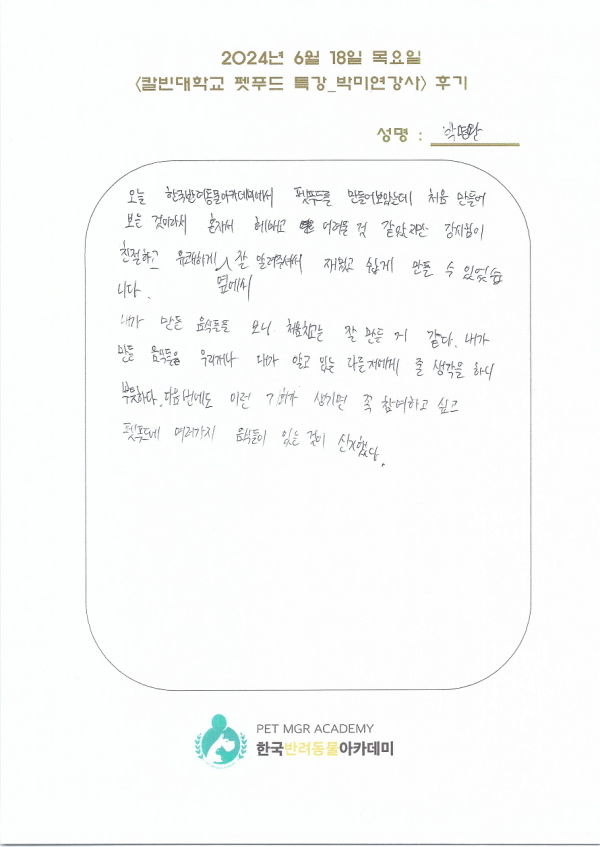 2024년 6월 18일 목요일
<칼빈대학교 펫푸드 특강_박미연강사> 후기
성명 :
오늘 한국반려동물아카데미에서 펫푸드를 만들어보았는데 처음 만들어
보는 것이라서 혼자서 헤매고 어려울 것 같았지만 강사님이
친절하고 유쾌하게 옆에서 잘 알려주셔서 재밌고 쉽게 만들 수 있었습
니다.
내가 만든 음식들을 보니 처음치고는 잘 만든 거 같다. 내가
만든 음식들을 우리 내가 알고 있는 다른 에게 줄 생각을 하니
뿌듯하다. 다음번에도 이런 기회가 생기면 꼭 참여하고 싶고
펫푸드에 여러가지 음식들이 있는 것이 신기했다.
PET MGR ACADEMY
한국반려동물아카데미